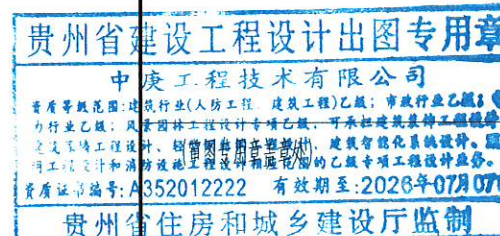 贵州省建设工程设计出图专用章
中庚工程技术有限公司
资质等级范围:建筑行业(人防工程 建筑工程)乙级;市政行业乙级;
力行业乙级;风景园林工程设计专项乙级,可承担建筑装饰工程设计
建筑幕墙工程设计、轻 建筑智能化系统设计、
明工程设计和消防设施工程设计相应范围的乙级专项工程设计业务。
出图专用章盖章处
资质证书编号:A352012222 有效期至:2026年07月07
贵州省住房和城乡建设厅监制